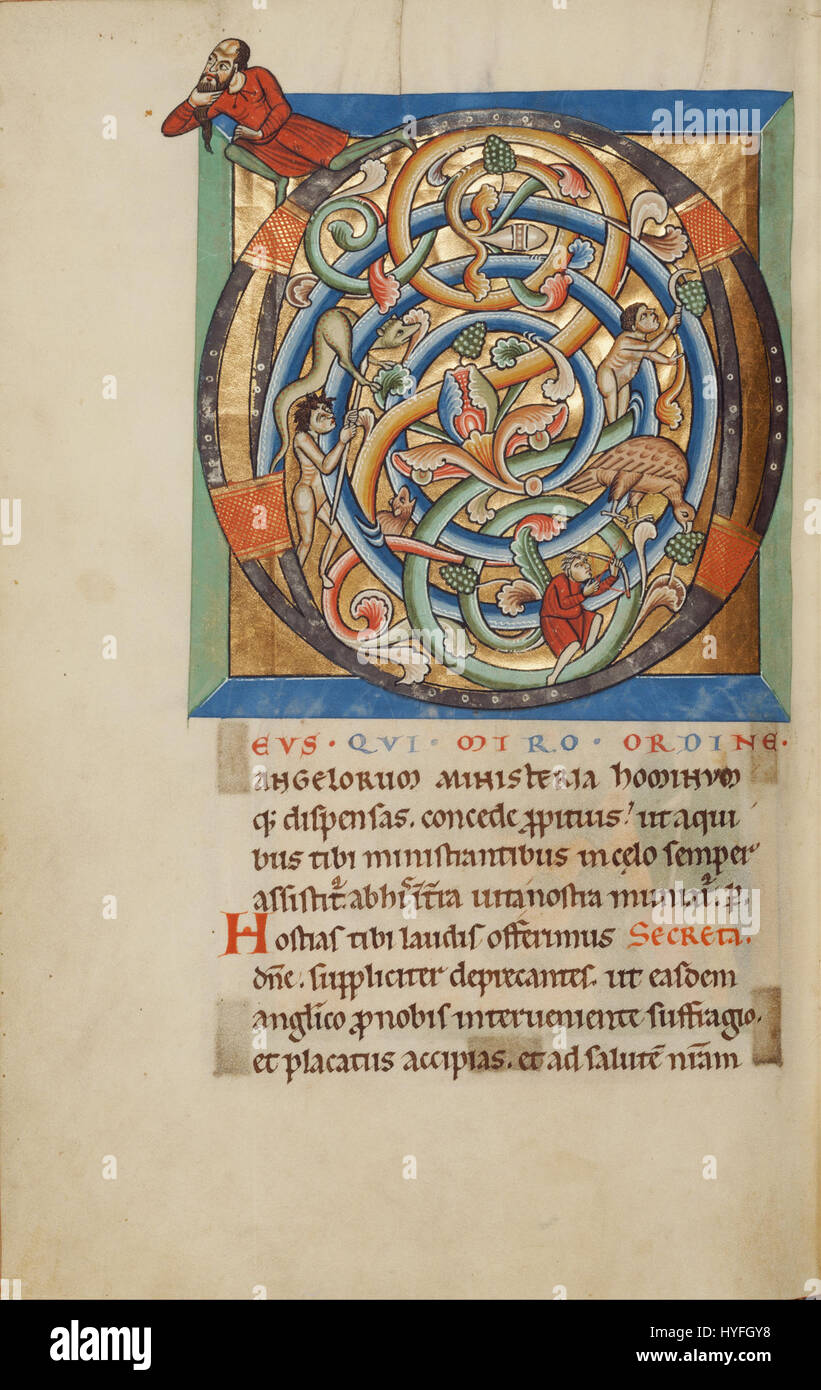 EVS · QVI · MIRO · ORDINE ·
ANGELORUM MINISTERIA HOMINVM
q; dispensas. concede ꝓpitius! ut aqui
bus tibi ministrantibus incelo semper
assistit᷑. abhis intra uitanostra muniat᷑. p.
Hostias tibi laudis offerimus Secreta.
dn̄e. suppliciter deprecantes. ut easdem
anglico ꝓnobis interueniente suffragio.
et placatus accipias. et ad salutē nr̄am
alamy stock photo
a
alamy
Image ID: HYFGY8
www.alamy.com